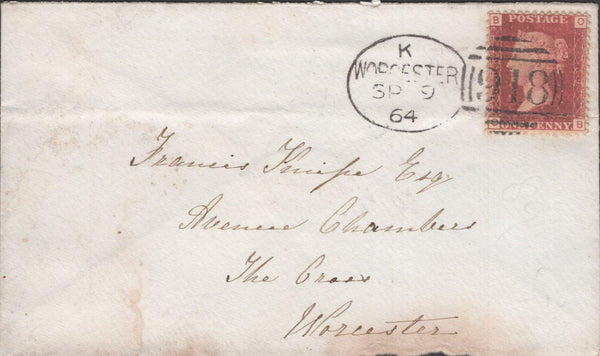 K
WORCESTER
SP 9
64
918
B O
POSTAGE
PENNY
B
Francis Knipe Esq
Avenue Chambers
The Cross
Worcester